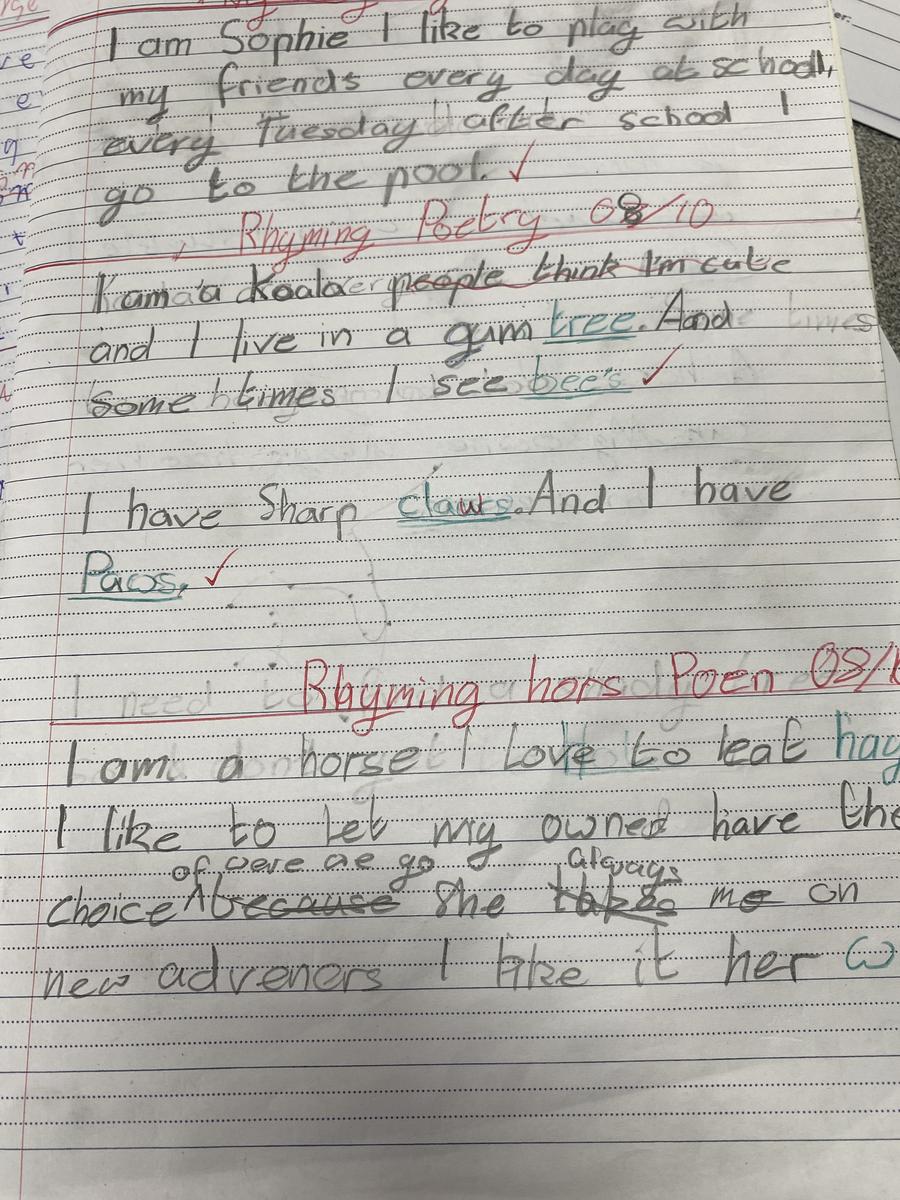 I am Sophie I like to play with
my friends every day at school,
every Tuesday after school I
go to the pool.
Rhyming Poetry 08/10
I am a Koala people think I'm cute
and I live in a gum tree. And
some times I see bee's
I have Sharp claws. And I have
Paws.
Rhyming hors Poen 08/1
I am a horse I Love to eat hay
I like to let my owner have the
of were we go always
choice ^ because She takes me on
new advenors I like it her w